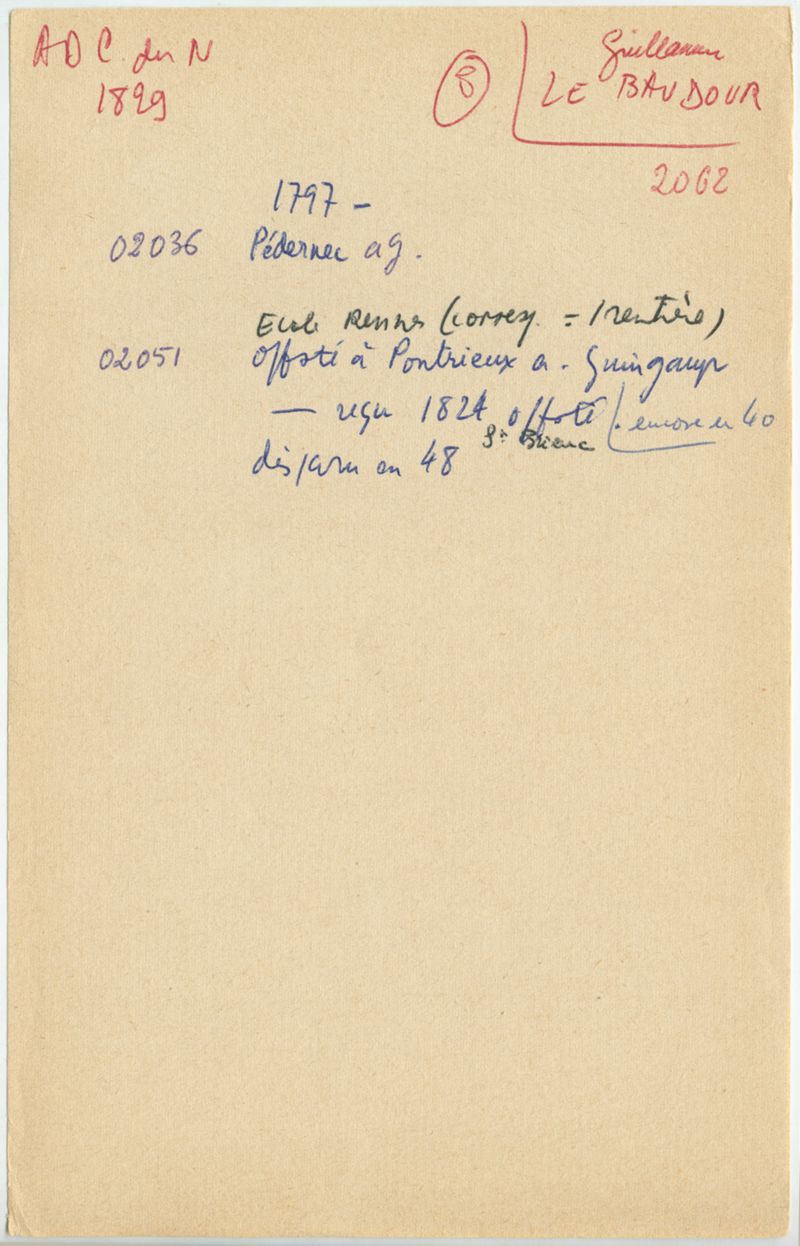 ADC. du N
1829
8
Guillaume
LE BAUDOUR
2062
1797 –
02036 Pédernec ag.
Ecole Rennes (corresp. = 1 rentière)
02051 Offsté à Pontrieux a. Guingamp
— reçu 1824 offsté . encore en 40
St Brieuc
disparu en 48